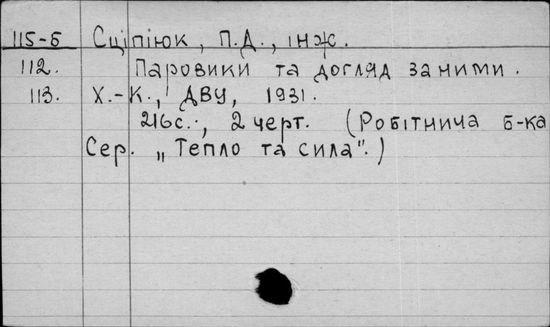 115-Б Сціпіюк, П.Д., інж.
112. Паровики та догляд за ними.
113. Х.-К., ДВУ, 1931.
216с., 2 черт. (Робітнича б-ка
Сер. „Тепло та сила".)